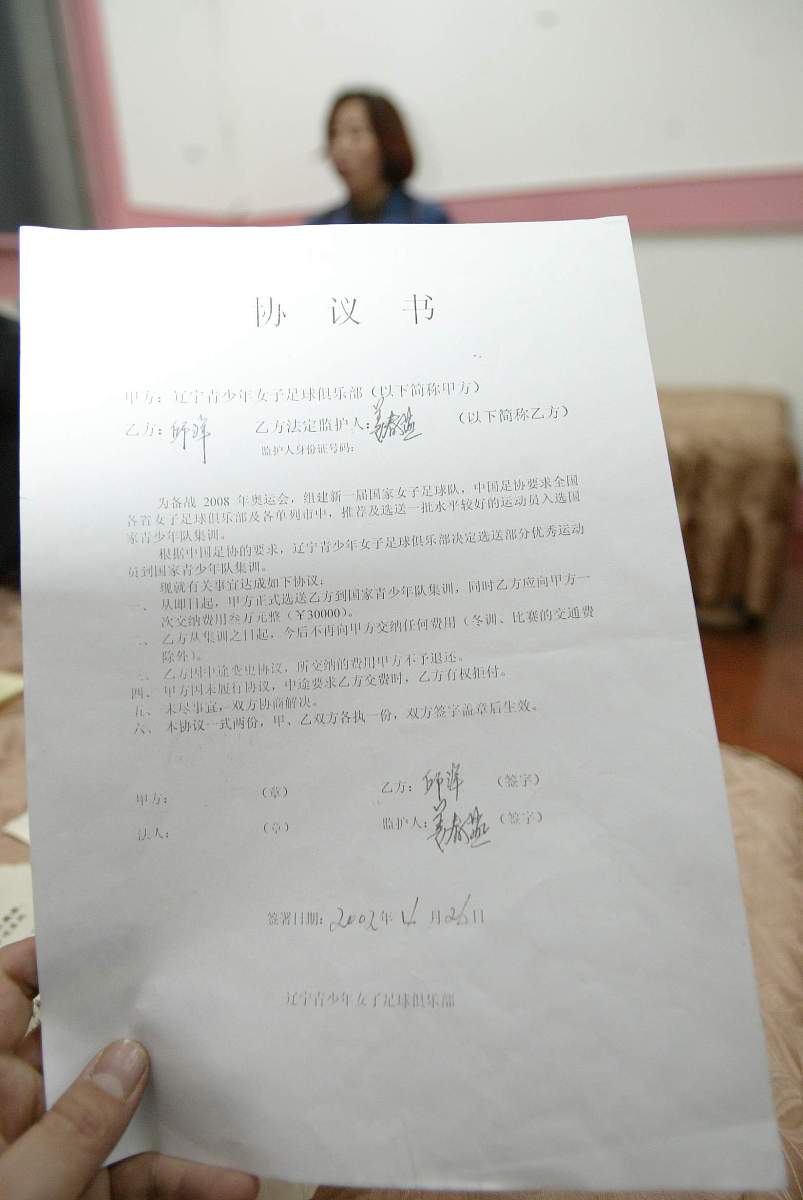 协 议 书
甲方：辽宁青少年女子足球俱乐部（以下简称甲方）
乙方： 乙方法定监护人：姜春 （以下简称乙方）
监护人身份证号码：
为备战 2008 年奥运会，组建新一届国家女子足球队，中国足协要求全国
各省女子足球俱乐部及各单列市中，推荐及选送一批水平较好的运动员入选国
家青少年队集训。
根据中国足协的要求，辽宁青少年女子足球俱乐部决定选送部分优秀运动
员到国家青少年队集训。
现就有关事宜达成如下协议：
一、 从即日起，甲方正式选送乙方到国家青少年队集训，同时乙方应向甲方一
次交纳费用叁万元整（￥30000）。
二、 乙方从集训之日起，今后不再向甲方交纳任何费用（冬训、比赛的交通费
除外）。
三、 乙方因中途变更协议，所交纳的费用甲方不予退还。
四、 甲方因未履行协议，中途要求乙方交费时，乙方有权拒付。
五、 未尽事宜，双方协商解决。
六、 本协议一式两份，甲、乙双方各执一份，双方签字盖章后生效。
甲方： （章） 乙方： （签字）
法人： （章） 监护人：姜春 （签字）
签署日期：2002年 4 月 26 日
辽宁青少年女子足球俱乐部